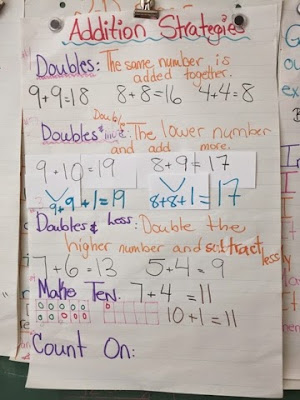 Addition Strategies
Doubles: The same number is
added together.
9+9=18 8+8=16 4+4=8
Double
Doubles & more: The lower number
and add more.
9+10=19 8+9=17
9+9+1=19 8+8+1=17
Doubles & Less: Double the
higher number and subtract
less
7+6=13 5+4=9
Make Ten. 7+4=11
10+1=11
Count On: